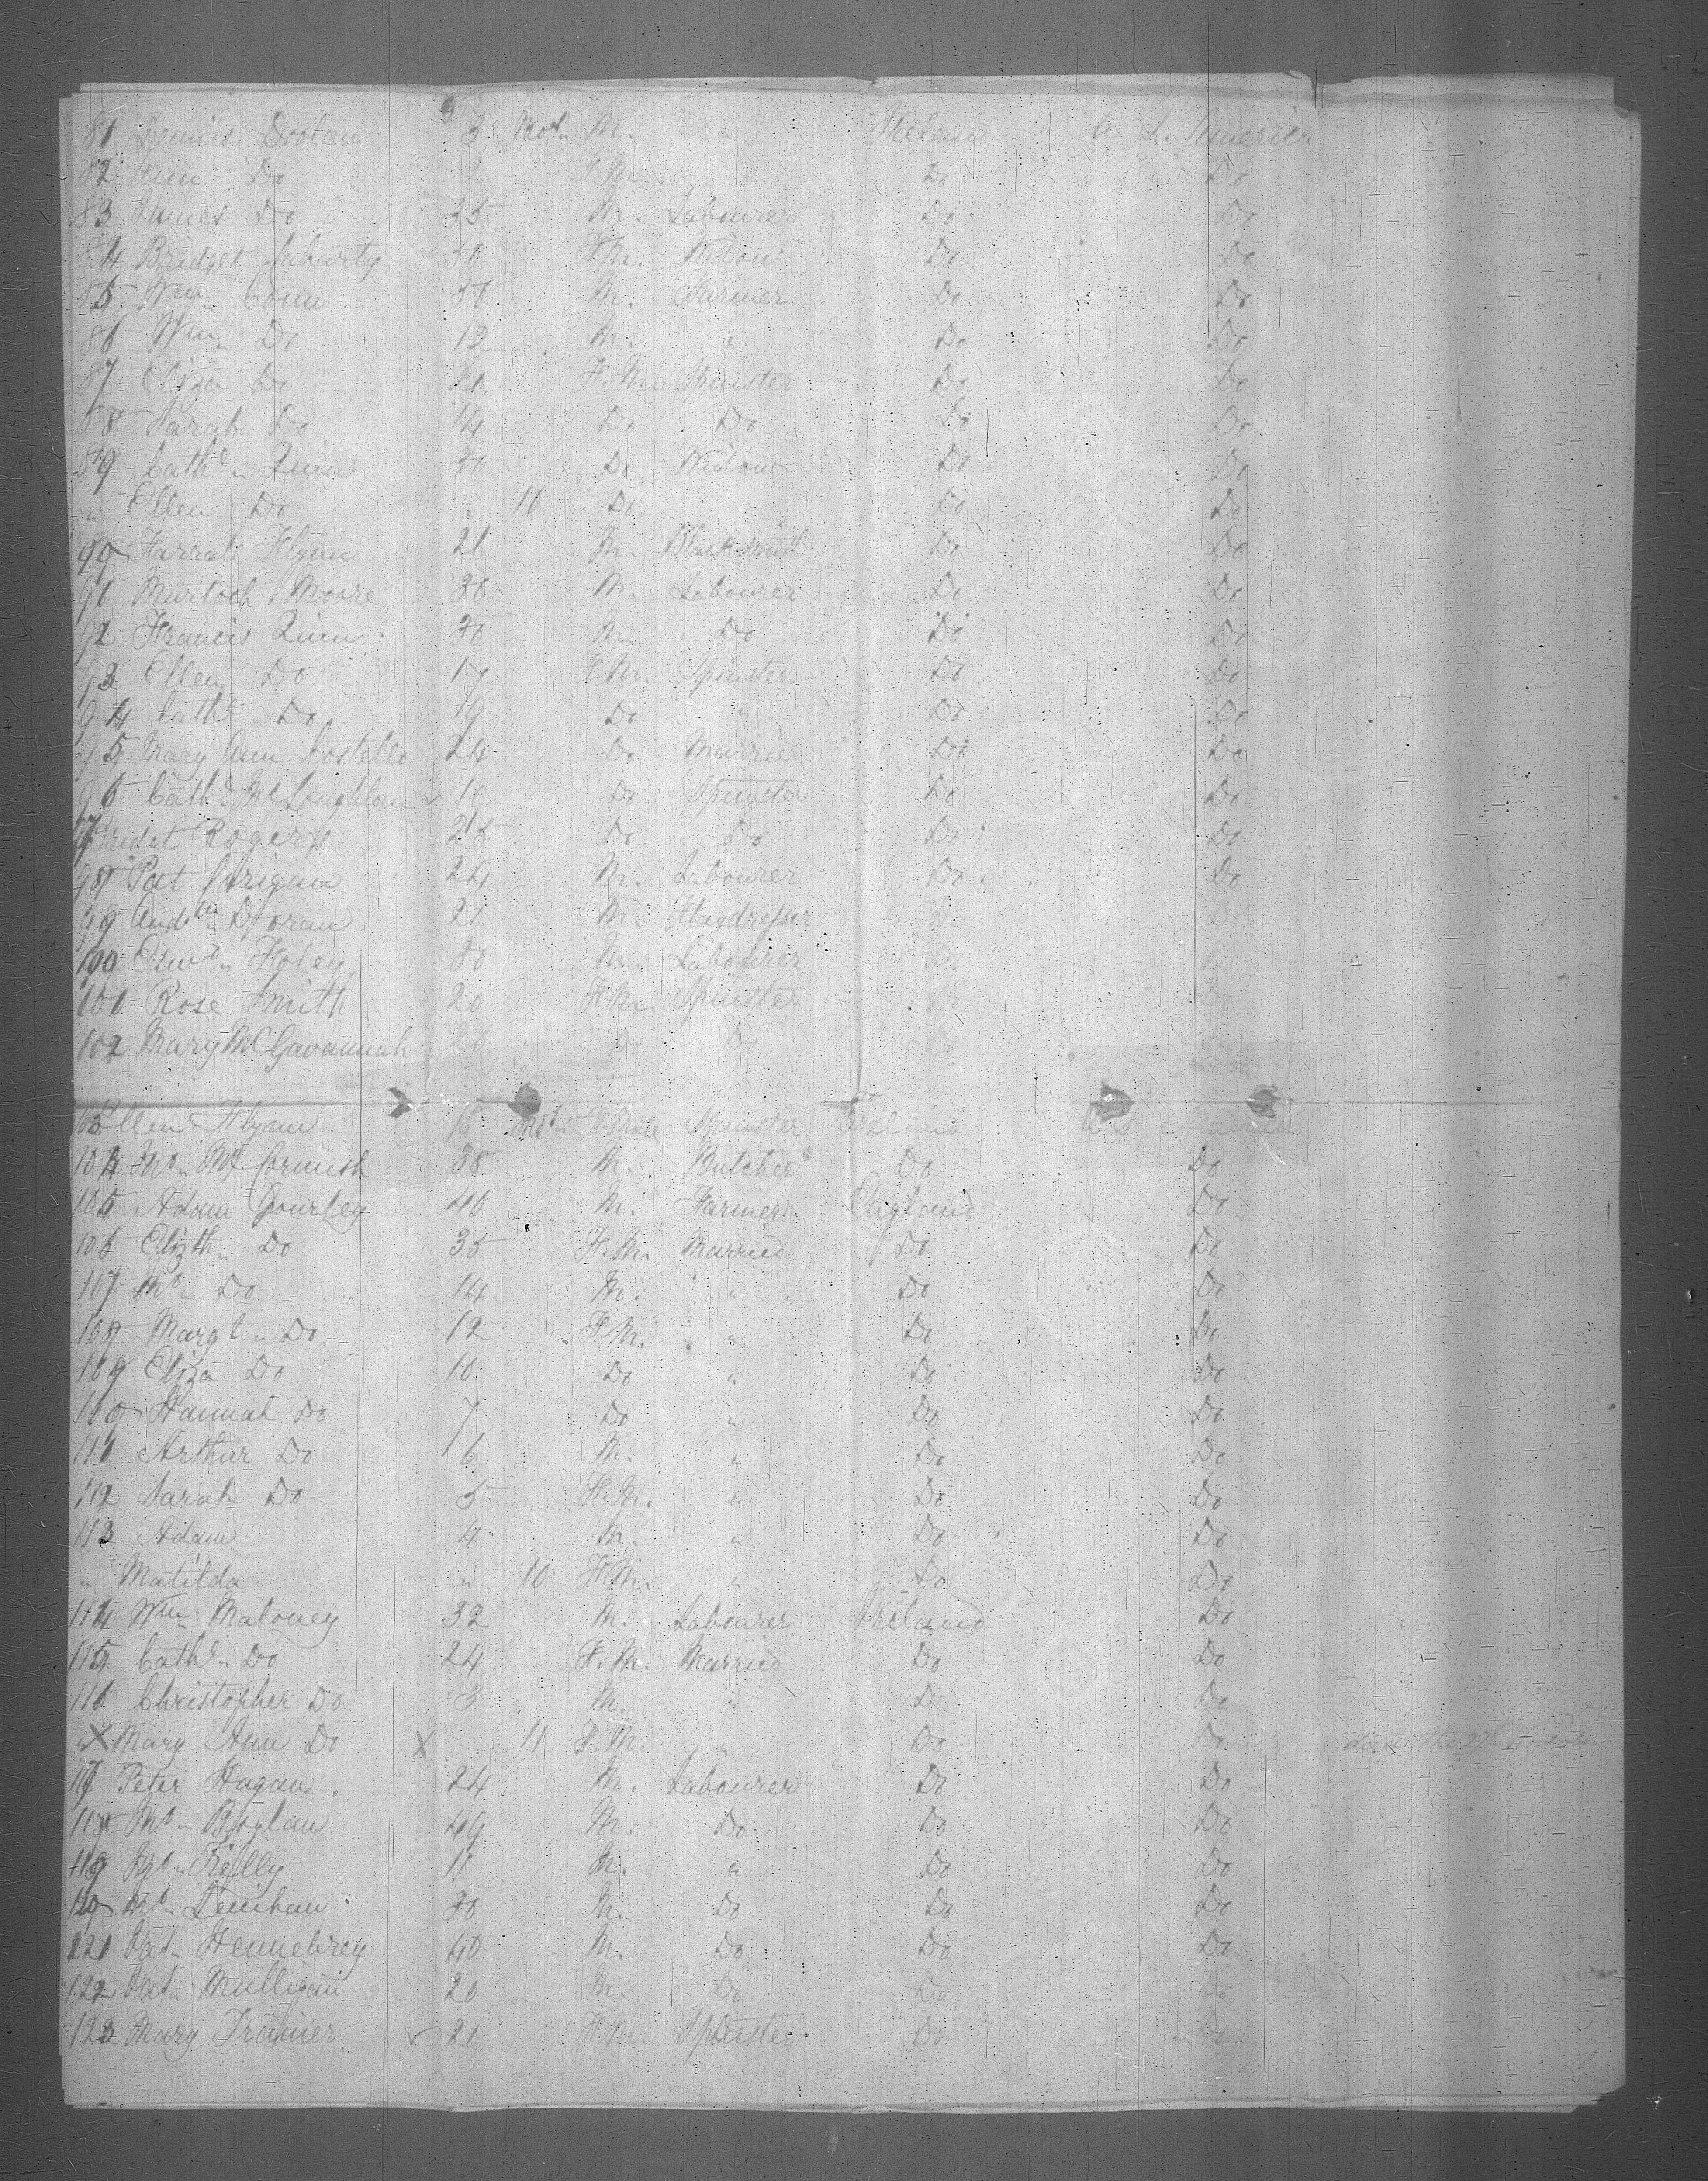 81 Dennis Drotan 3 Mots M. " Ireland U. S. America
82 Ann Do F.M. Do Do
83 James Do 25 M. Labourer Do Do
84 Bridget 30 F.M. Widow Do Do
85 Wm. Conn 50 M. Farmer Do Do
86 Wm. Do 12 M. " Do Do
87 Eliza Do 20 F.M. Spinster Do Do
88 Sarah Do 14 Do Do Do Do
89 Cathe. Quinn 30 Do Widow Do Do
" Ellen Do " 10 Do Do Do
90 Farral Flynn 21 M. Blacksmith Do Do
91 Murtoch Moore 30 M. Labourer Do Do
92 Francis Quinn 30 M. Do Do Do
93 Ellen Do 17 F.M. Spinster Do Do
94 Cathe Do 19 Do " Do Do
95 Mary Ann Costello 24 Do Married Do Do
96 Cathe. McLoughlan 19 Do Spinster Do Do
97 Bridget Rogers 25 Do Do Do Do
98 Pat Corigan 24 M. Labourer Do Do
99 Doran 20 M.
100 Edwd. Foley 30 M. Labourer Do
101 Rose Smith 20 F.M. Spinster Do
102 Mary McGavannah 20 Do Do Do
103 Ellen Flynn 18 F.Male Spinster Ireland
104 Jno. McCormish 38 M. Butcher Do Do
105 Adam Gourley 40 M. Farmer England Do
106 Elizth. Do 35 F.M. Married Do Do
107 Jno. Do 14 M. " Do Do
108 Margt. Do 12 F.M. " Do Do
109 Eliza Do 10 Do " Do Do
110 Hannah Do 7 Do " Do Do
111 Arthur Do 6 M. " Do Do
112 Sarah Do 5 F.M. " Do Do
113 Adam 4 M. " Do Do
" Matilda " 10 F.M. " Do Do
114 Wm. Maloney 32 M. Labourer Ireland Do
115 Cathe. Do 24 F.M. Married Do Do
116 Christopher Do 3 M. " Do Do
X Mary Ann Do X 11 F.M. Do Do
117 Peter Hagan 24 M. Labourer Do Do
118 Jno. Boylan 49 M. Do Do Do
119 Jno. Fielly 11 M. " Do Do
120 Jno. Lenihan 30 M. Do Do Do
121 Pat. Hennebrey 40 M. Do Do Do
122 Pat. Mulligan 20 M. Do Do Do
123 Mary Trainer 20 F.M. Spinster Do Do